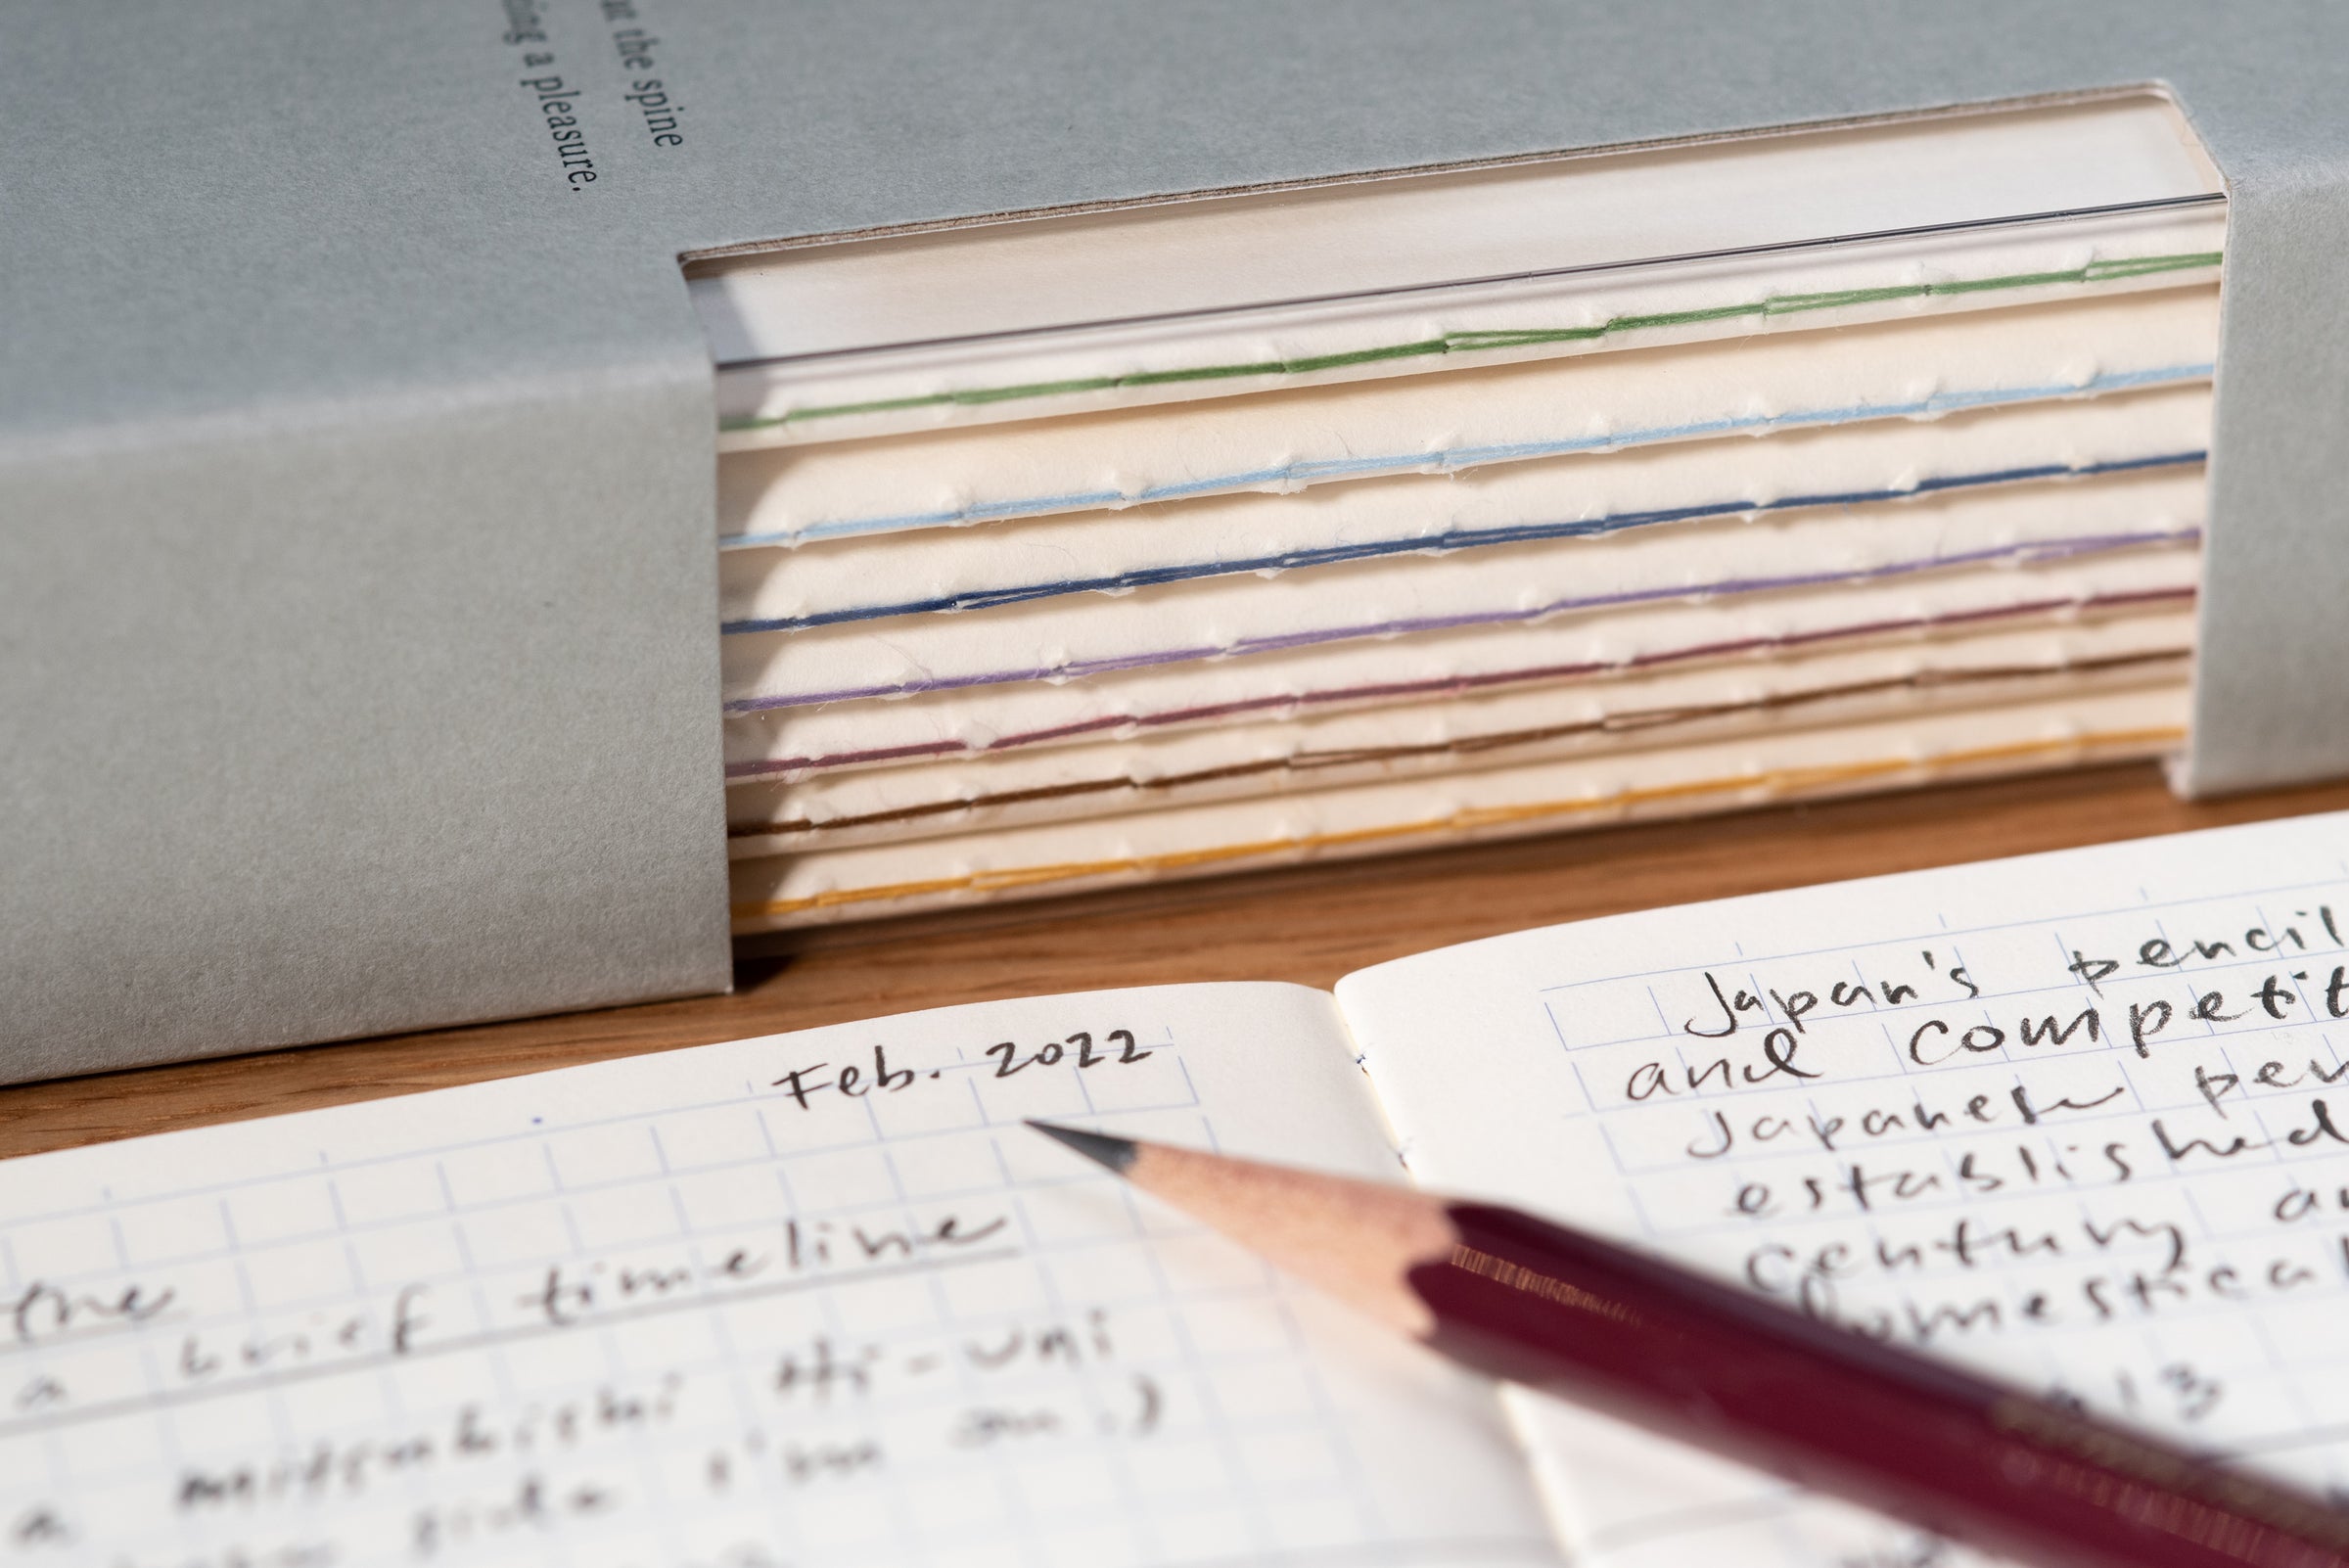 the spine
ing a pleasure.
Feb. 2022
the
a brief timeline
a mitsubishi Hi-uni
side I'm on.)
Japan's pencil
and competit
Japanese pen
established
century a
domestical
913